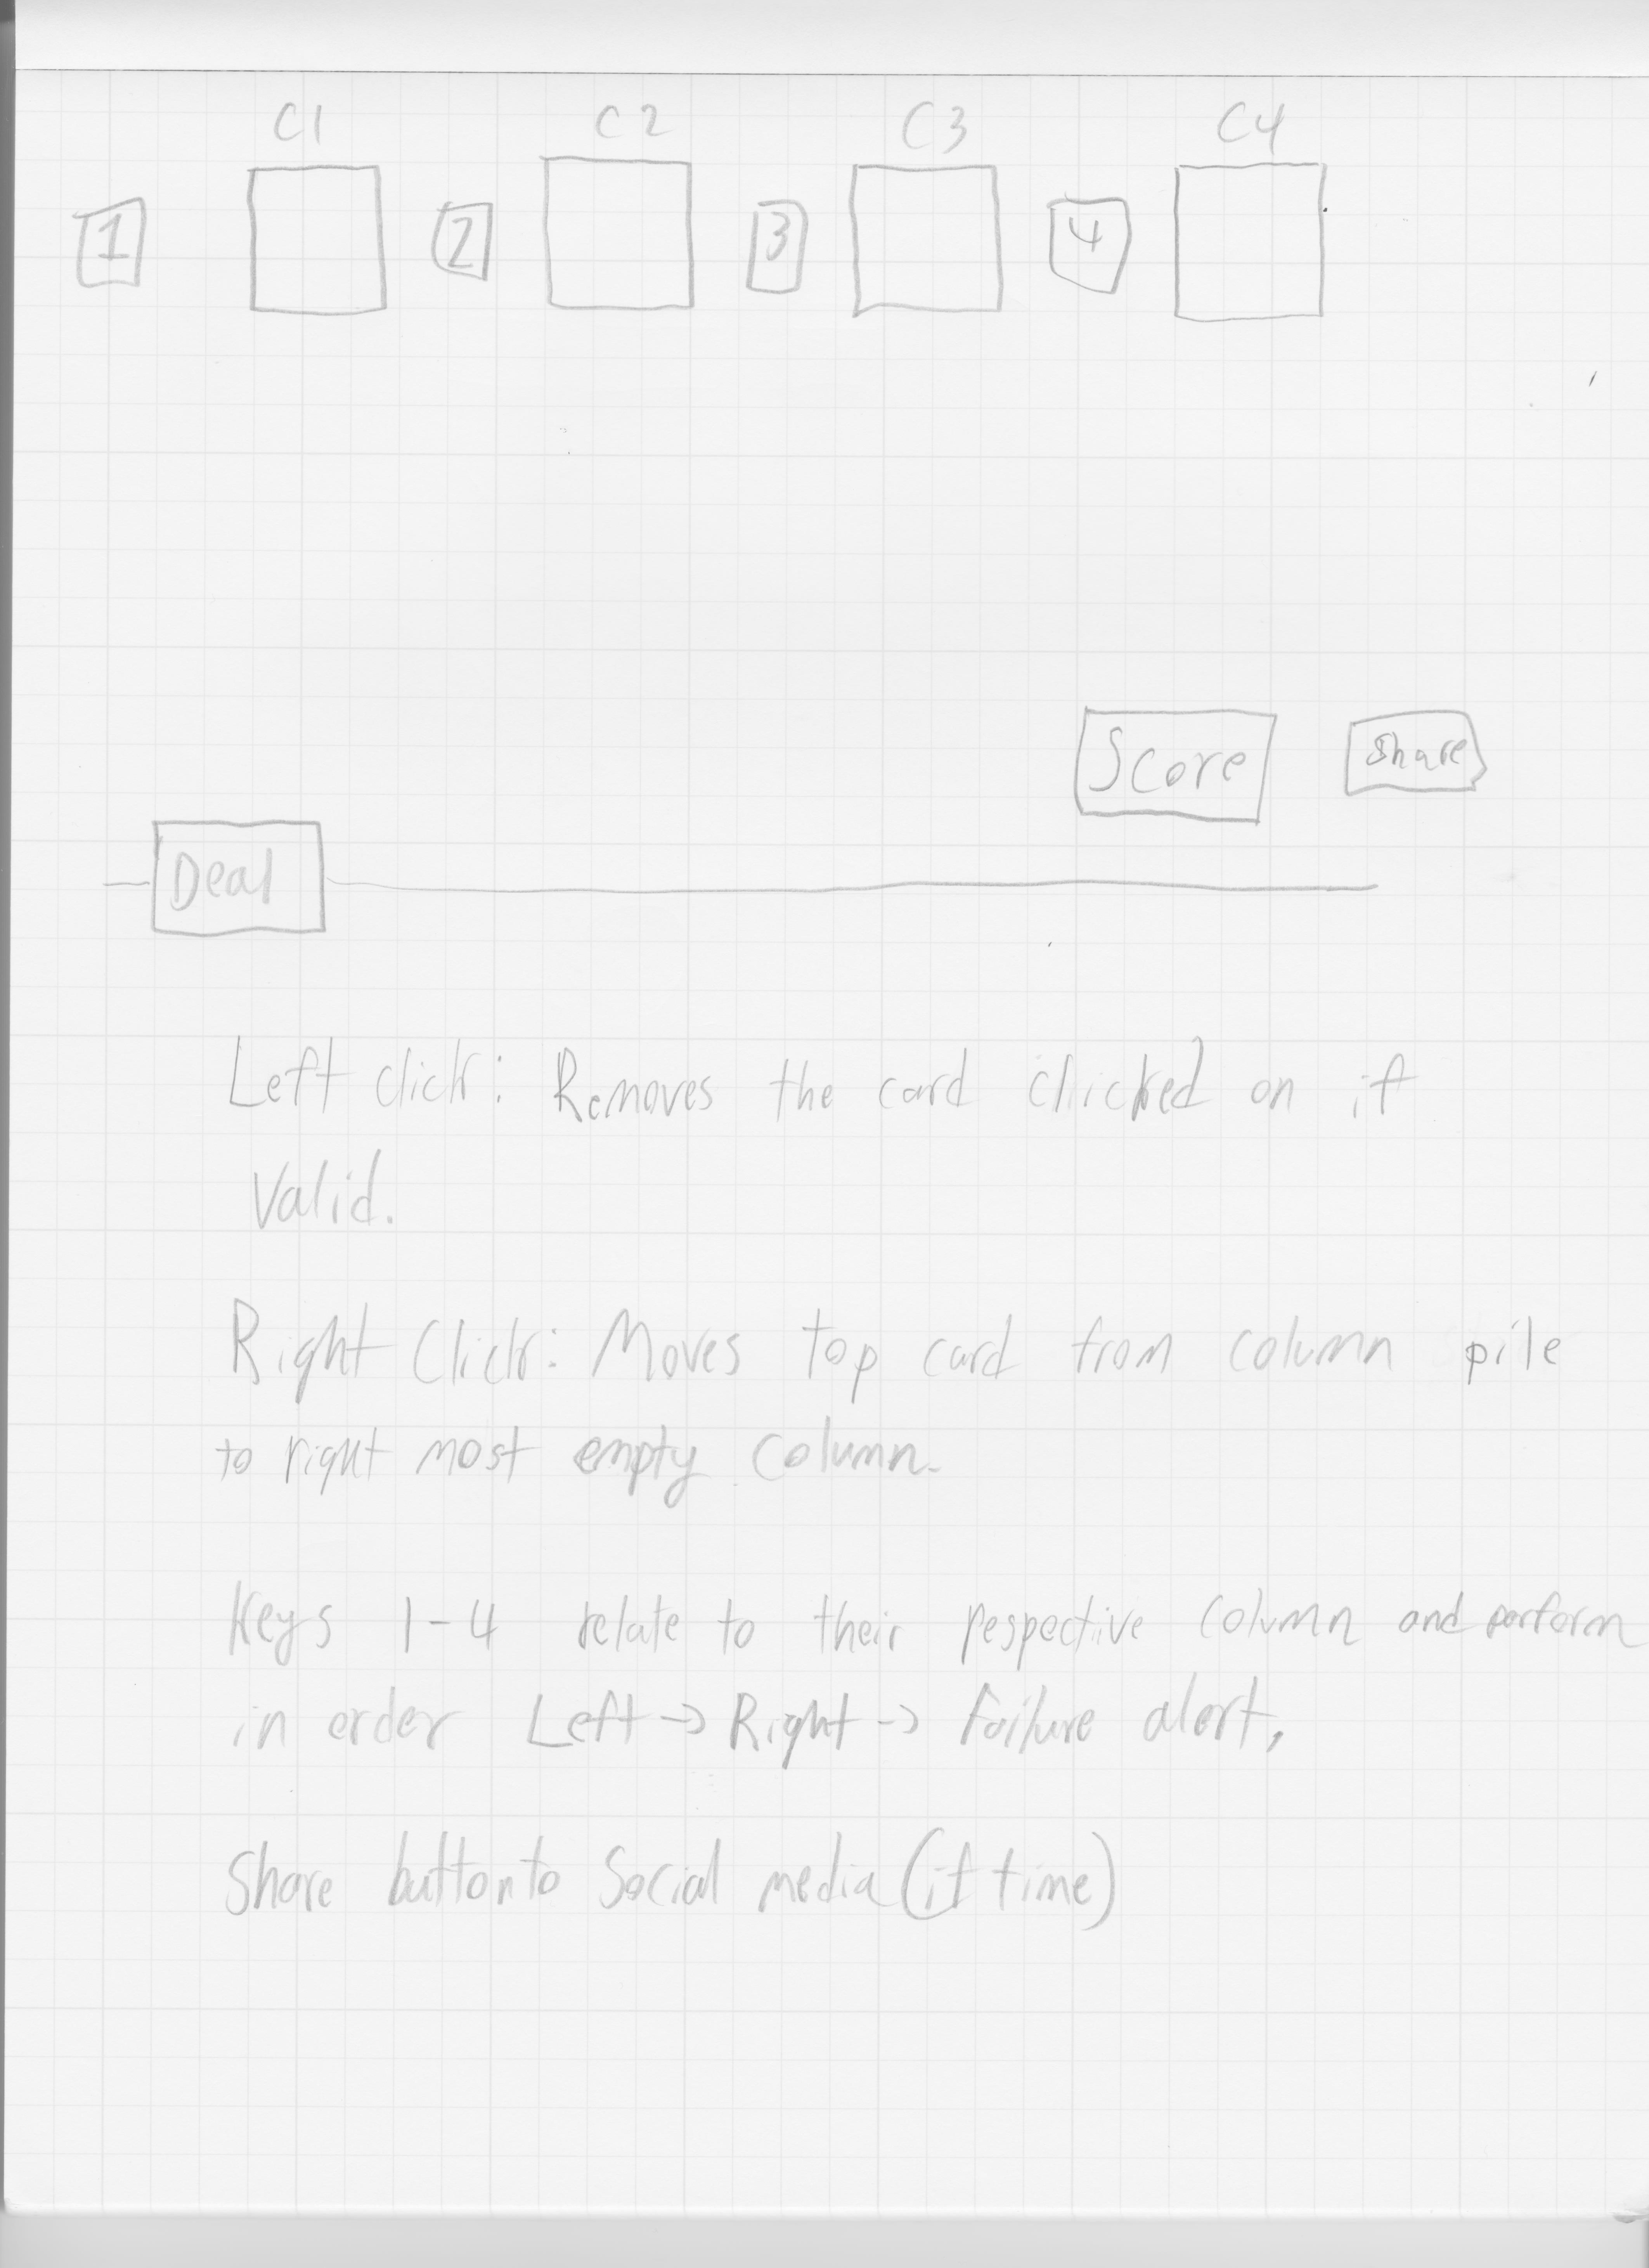 C1 C2 C3 C4
1 2 3 4
Score Share
Deal
Left click: Removes the card clicked on if
Valid.
Right Click: Moves top card from column pile
to right most empty column.
Keys 1-4 relate to their respective column and perform
in order Left → Right → Failure alert,
Share button to Social media (if time)